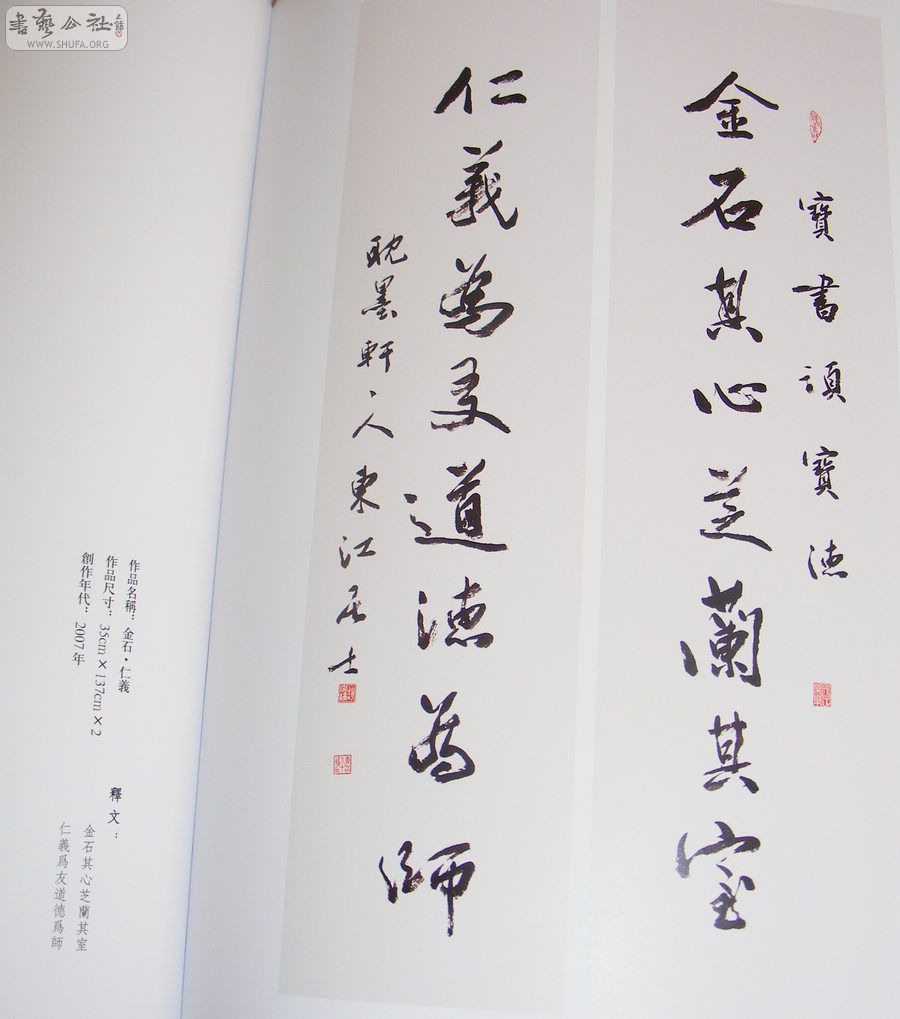 書藝公社
WWW.SHUFA.ORG
寶書頌寶德
金石其心芝蘭其室
仁義為友道德為師
耽墨軒主人東江居士
作品名稱：金石·仁義
作品尺寸：35cm×137cm×2
創作年代：2007年
釋文：
金石其心芝蘭其室
仁義爲友道德爲師